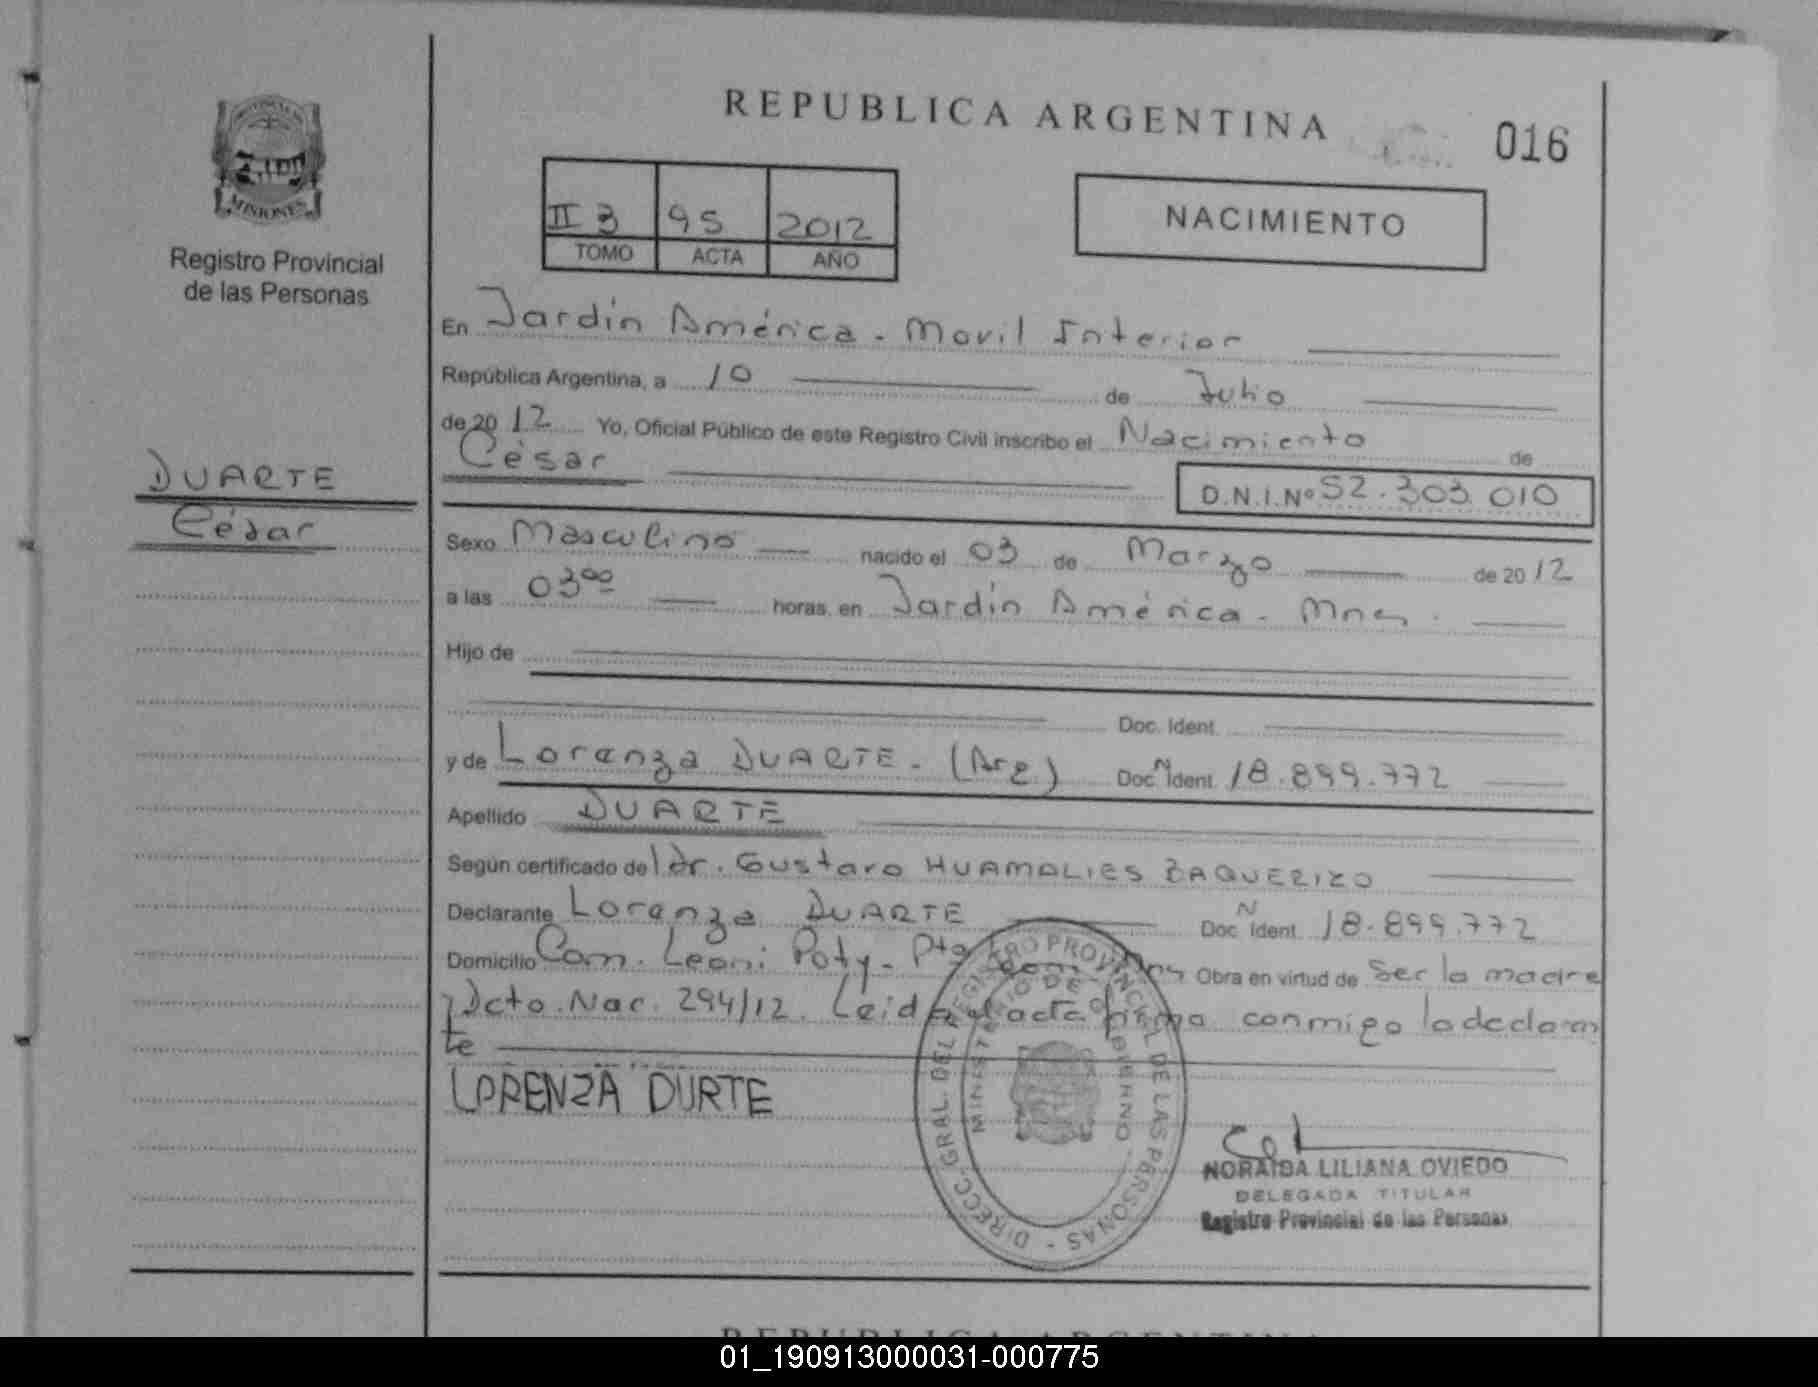 REPUBLICA ARGENTINA
016
MISIONES
Registro Provincial
de las Personas
II 3 95 2012
TOMO ACTA AÑO
NACIMIENTO
En Jardín América - Movil Interior
República Argentina, a 10 de Julio
de 2012 Yo, Oficial Público de este Registro Civil inscribo el Nacimiento de
César
D.N.I.Nº 52.303.010
DUARTE
César
Sexo Masculino nacido el 03 de Marzo de 2012
a las 03:00 horas, en Jardín América - Mnes.
Hijo de
Doc. Ident.
y de Lorenza DUARTE - (Arg) Doc. N Ident. 18.899.772
Apellido DUARTE
Según certificado del dr. Gustavo HUAMOLIES BAQUERIZO
Declarante Lorenza DUARTE Doc. N Ident. 18.899.772
Domicilio Com. Leoni Poty - Pto Obra en virtud de Ser la madre
Dcto. Nac. 294/12. Leida el acta firma conmigo la declaran
te
LORENZA DURTE
DIRECC. GRAL. DEL REGISTRO PROVINCIAL DE LAS PERSONAS -
MINISTERIO DE GOBIERNO
NORAIDA LILIANA OVIEDO
DELEGADA TITULAR
Registro Provincial de las Personas
REPUBLICA ARGENTINA
01_190913000031-000775